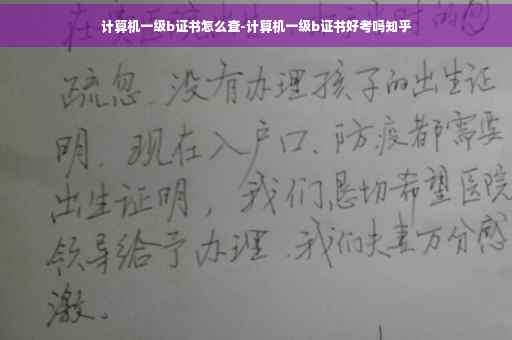 计算机一级b证书怎么查-计算机一级b证书好考吗知乎
疏忽.没有办理孩子的出生证
明.现在入户口、防疫都需要
出生证明，我们恳切希望医院
领导给予办理.我们夫妻万分感
激。